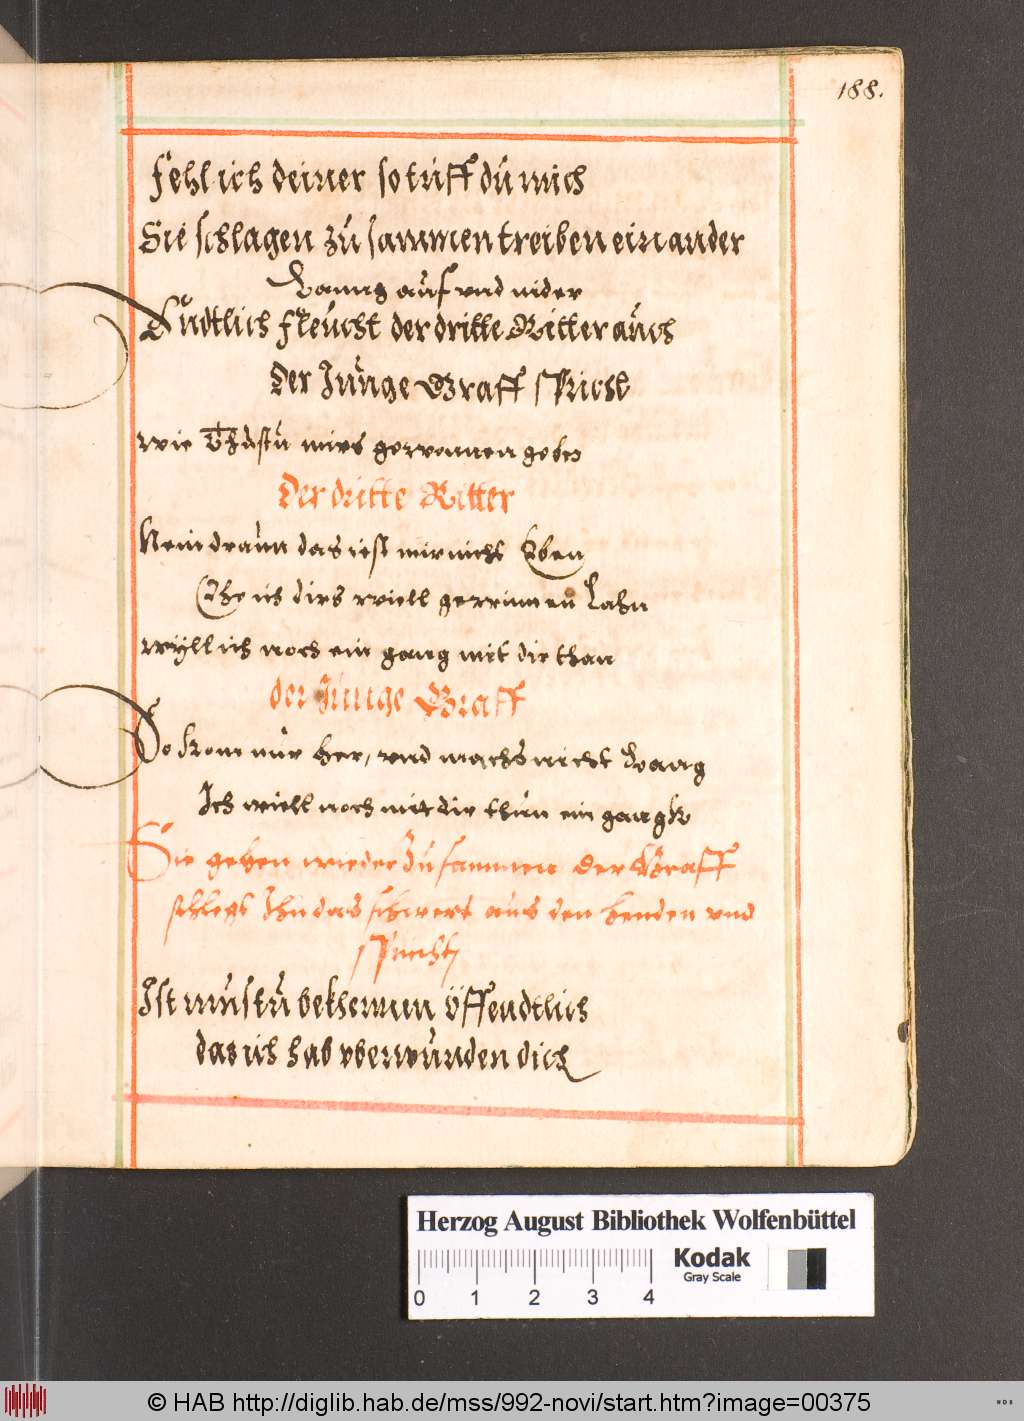 188.
fehl ich deiner so triff dü mich
Sie schlagen zü sammen treiben ein ander
Lanng aüf vnd nider
Endtlich fleücht der dritte Ritter aüch
Der Jünge Graff spricht
wie Thüstü mirs gewonnen geben
Der dritte Ritter
Nein draün das ist mir nicht Eben
Ehe ich dirs wiell gewinnen Lahn
wÿll ich noch ein gang mit dir than
der Jünge Graff
So Kom nür her, vnd machs nicht Lanng
Ich wiell noch mit dir thün ein gangk
Sie gehen wieder Zü sammen der Graff
schlegt Ihn das schwert aüs den henden vnd
spricht
Ist müstü bekhennen öffendtlich
das ich hab vberwünden dich
Herzog August Bibliothek Wolfenbüttel
Kodak
Gray Scale
0 1 2 3 4
© HAB http://diglib.hab.de/mss/992-novi/start.htm?image=00375